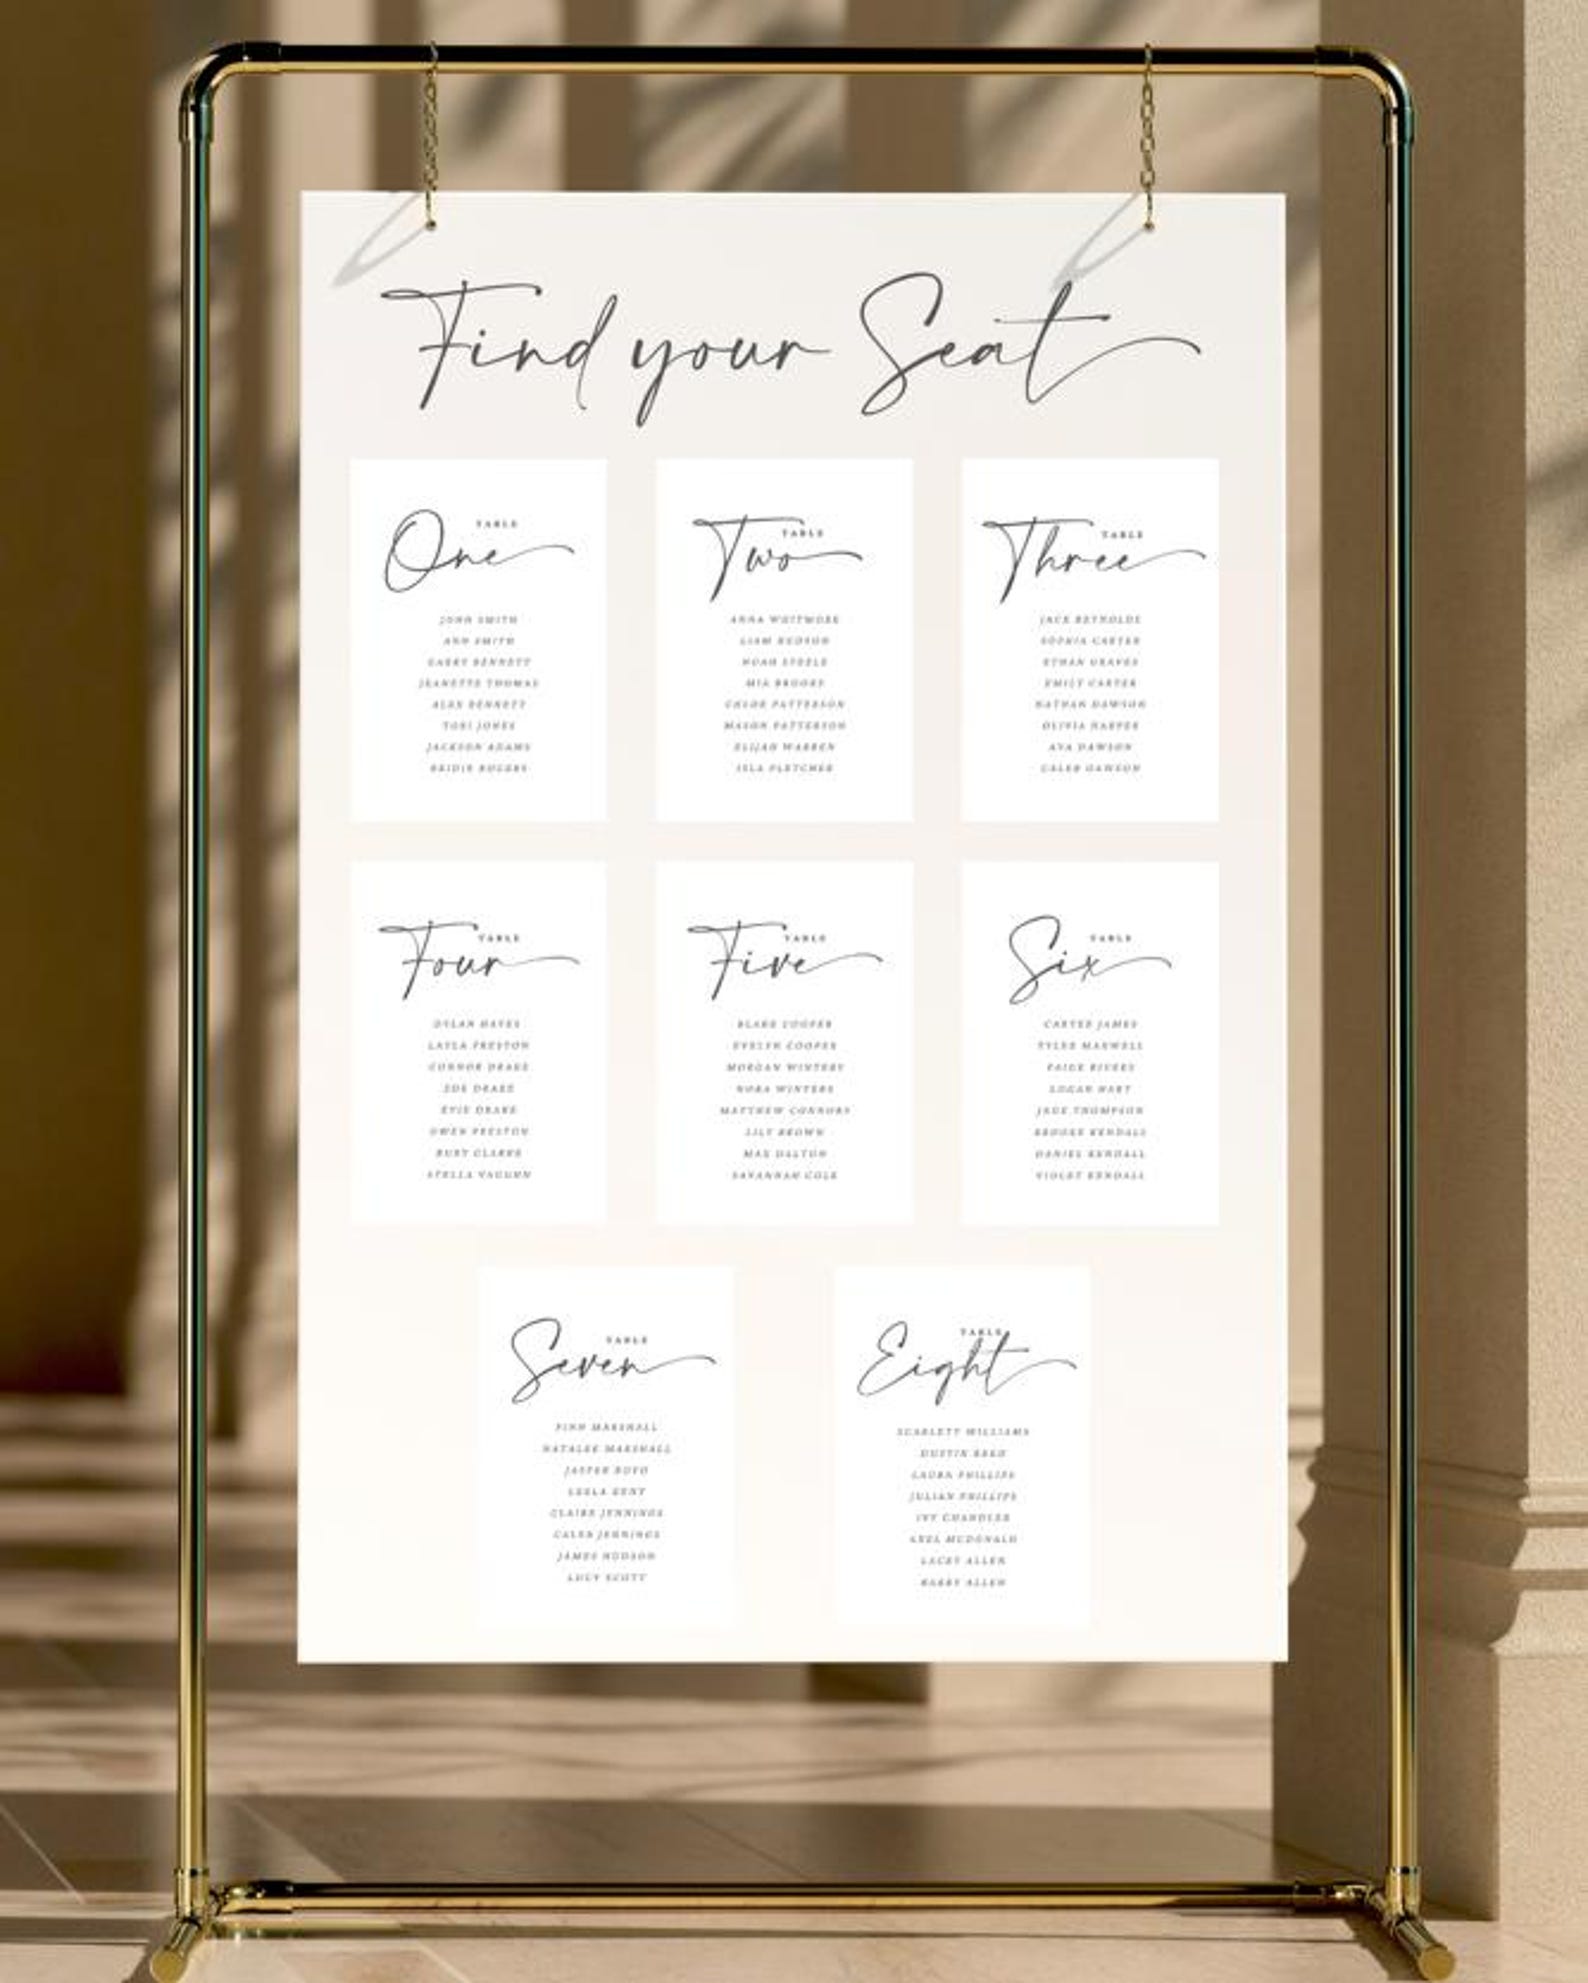 Find your Seat
TABLE
One
JOHN SMITH
ANN SMITH
GARRY BENNETT
JEANETTE THOMAS
ALEX BENNETT
TORI JONES
JACKSON ADAMS
ROGERS
TABLE
Two
ANNA WHITMORE
LIAM HUDSON
NOAH STEELE
MIA BROOKS
CHLOE PATTERSON
MASON PATTERSON
ELIJAH WARREN
ISLA FLETCHER
TABLE
Three
JACK REYNOLDS
SOPHIA CARTER
ETHAN GRAVES
EMILY CARTER
NATHAN DAWSON
OLIVIA HARPER
AVA DAWSON
CALEB DAWSON
TABLE
Four
DYLAN HAYES
LAYLA PRESTON
CONNOR DRAKE
ZOE DRAKE
EVIE DRAKE
OWEN PRESTON
RUBY CLARKE
STELLA VAUGHN
TABLE
Five
BLAKE COOPER
EVELYN COOPER
MORGAN WINTERS
NORA WINTERS
MATTHEW CONNORS
LILY BROWN
MAX DALTON
SAVANNAH COLE
TABLE
Six
CARTER JAMES
TYLER MAXWELL
PAIGE RIVERS
LOGAN HART
JADE THOMPSON
BROOKE KENDALL
DANIEL KENDALL
VIOLET KENDALL
TABLE
Seven
FINN MARSHALL
NATALEE MARSHALL
JASPER BOYD
LEELA KENT
CLAIRE JENNINGS
CALEB JENNINGS
JAMES HUDSON
LUCY SCOTT
TABLE
Eight
SCARLETT WILLIAMS
DUSTIN REED
LAURA PHILLIPS
JULIAN PHILLIPS
IVY CHANDLER
AXEL MCDONALD
LACEY ALLEN
BARRY ALLEN